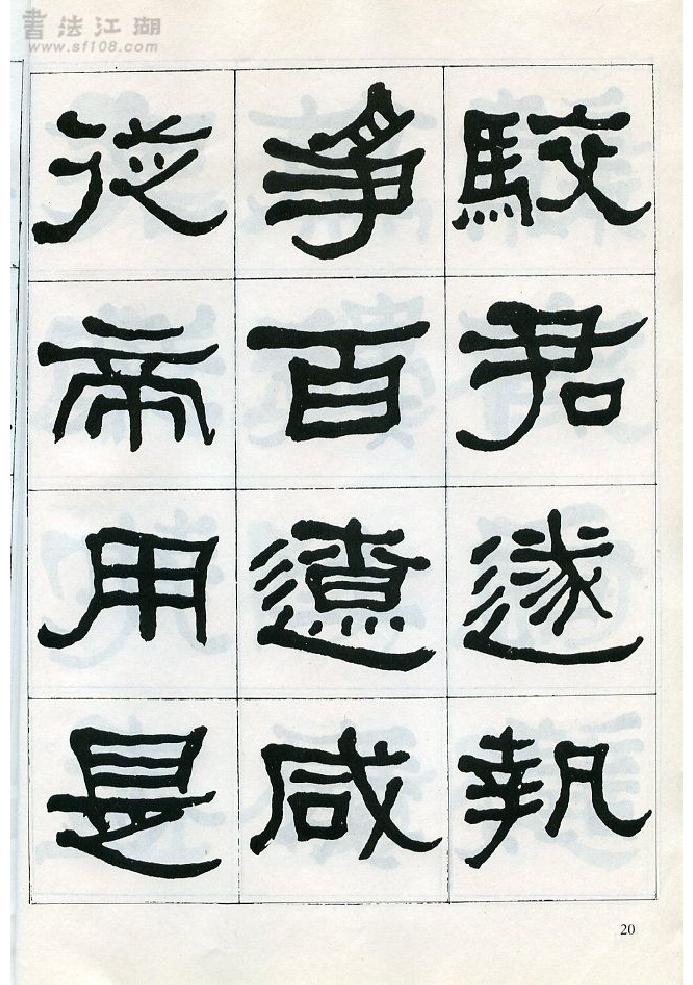 書法江湖
www.sf108.com
駮君遂執
爭百遼咸
從帝用是
20